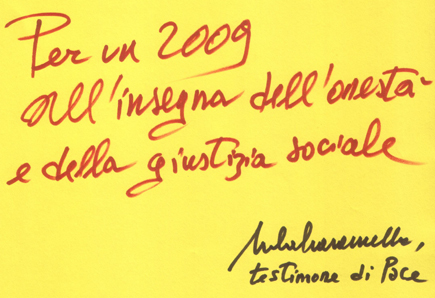 Per un 2009
all'insegna dell'onestà
e della giustizia sociale
testimone di Pace